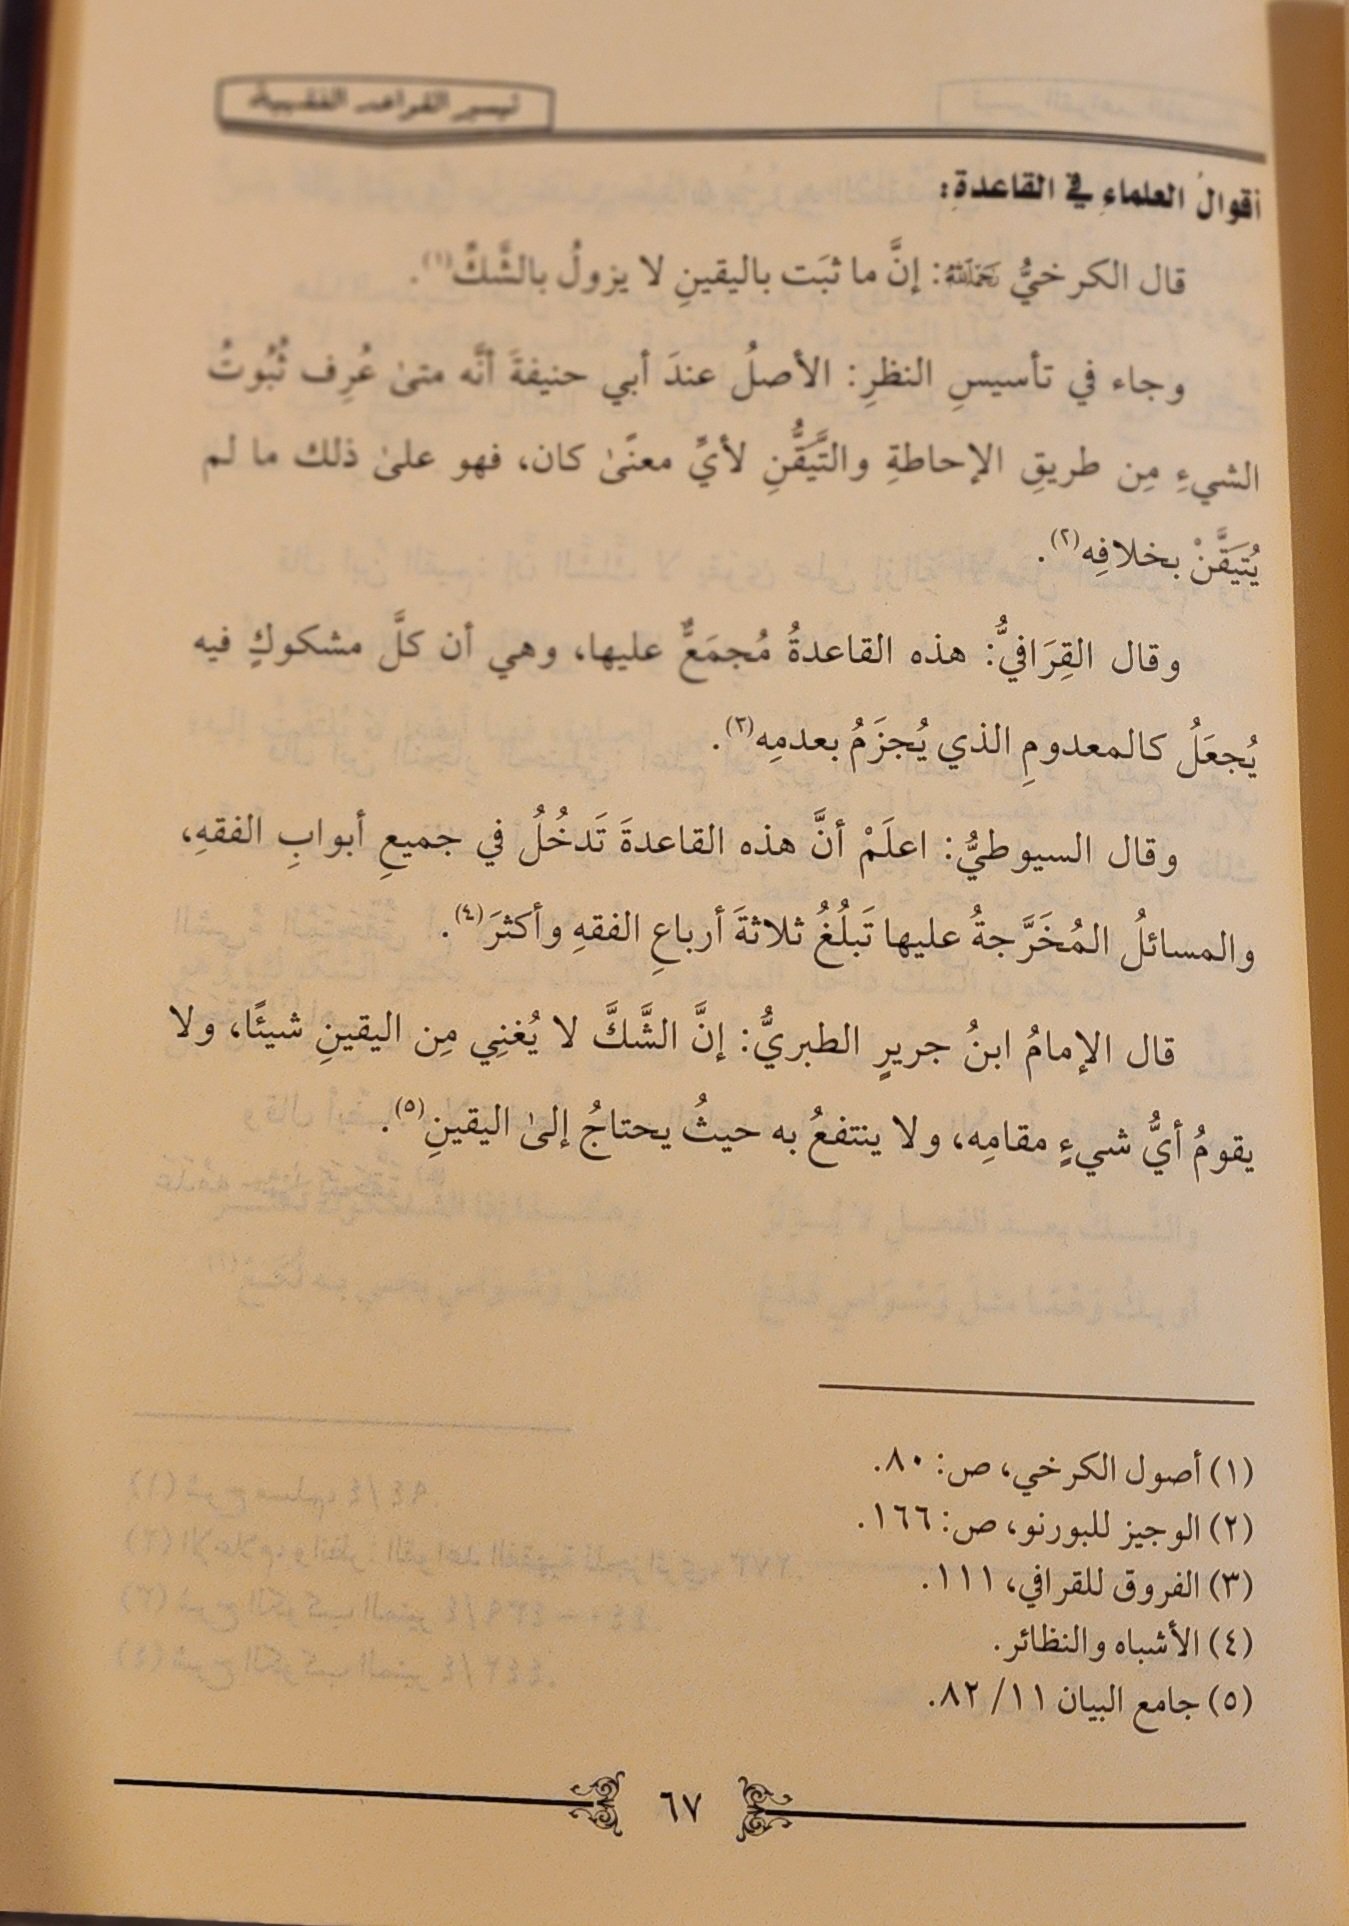 تيسير القواعد الفقهية
أقوالُ العلماءِ في القاعدةِ:
قال الكرخيُّ رَحِمَهُ اللَّهُ: إنَّ ما ثبَت باليقينِ لا يزولُ بالشَّكِّ(١).
وجاء في تأسيسِ النظرِ: الأصلُ عندَ أبي حنيفةَ أنَّه متىٰ عُرِف ثُبُوتُ
الشيءِ مِن طريقِ الإحاطةِ والتَّيَقُّنِ لأيِّ معنًىٰ كان، فهو علىٰ ذلك ما لم
يُتيَقَّنْ بخلافِه(٢).
وقال القِرَافيُّ: هذه القاعدةُ مُجمَعٌ عليها، وهي أن كلَّ مشكوكٍ فيه
يُجعَلُ كالمعدومِ الذي يُجزَمُ بعدمِه(٣).
وقال السيوطيُّ: اعلَمْ أنَّ هذه القاعدةَ تَدخُلُ في جميعِ أبوابِ الفقهِ،
والمسائلُ المُخَرَّجةُ عليها تَبلُغُ ثلاثةَ أرباعِ الفقهِ وأكثرَ(٤).
قال الإمامُ ابنُ جريرٍ الطبريُّ: إنَّ الشَّكَّ لا يُغنِي مِن اليقينِ شيئًا، ولا
يقومُ أيُّ شيءٍ مقامِه، ولا ينتفعُ به حيثُ يحتاجُ إلىٰ اليقينِ(٥).
(١) أصول الكرخي، ص: ٨٠.
(٢) الوجيز للبورنو، ص: ١٦٦.
(٣) الفروق للقرافي، ١١١.
(٤) الأشباه والنظائر.
(٥) جامع البيان ١١/ ٨٢.
٦٧